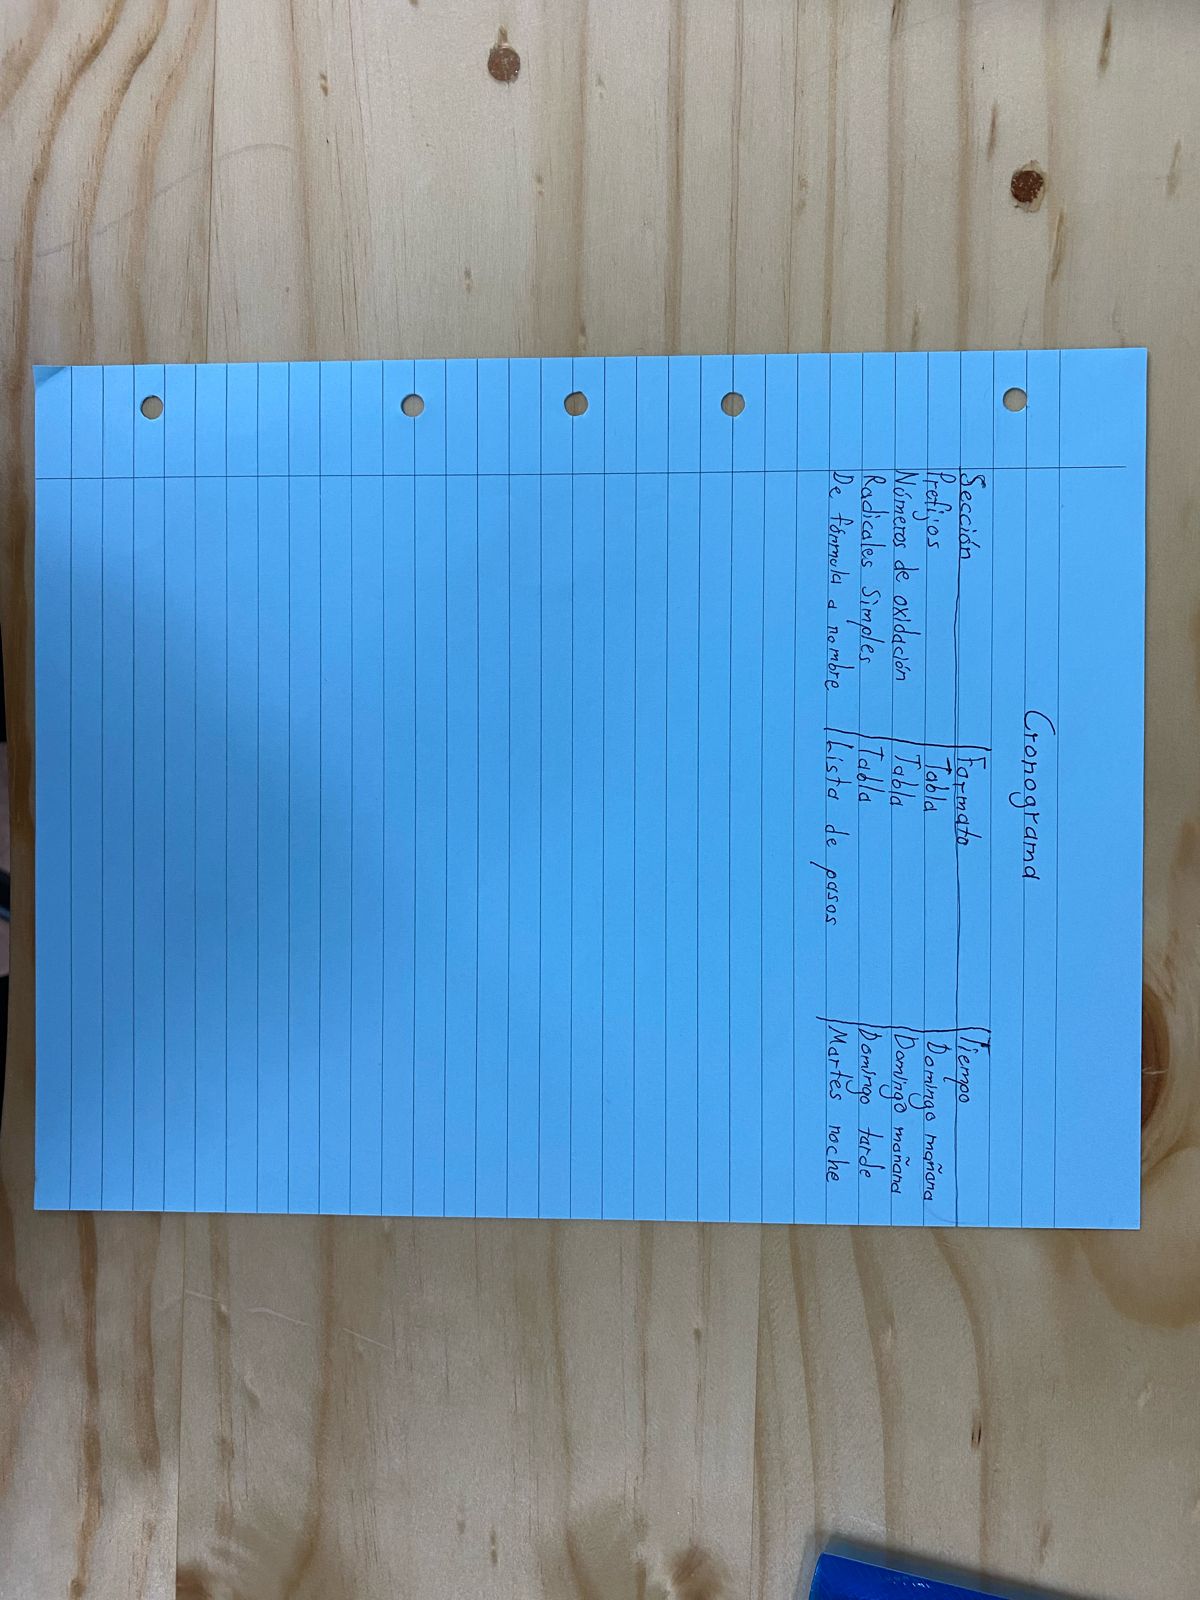 Cronograma
Sección | Formato | Tiempo
Prefijos | Tabla | Domingo mañana
Números de oxidación | Tabla | Domingo mañana
Radicales Simples | Tabla | Domingo tarde
De fórmula a nombre | Lista de pasos | Martes noche